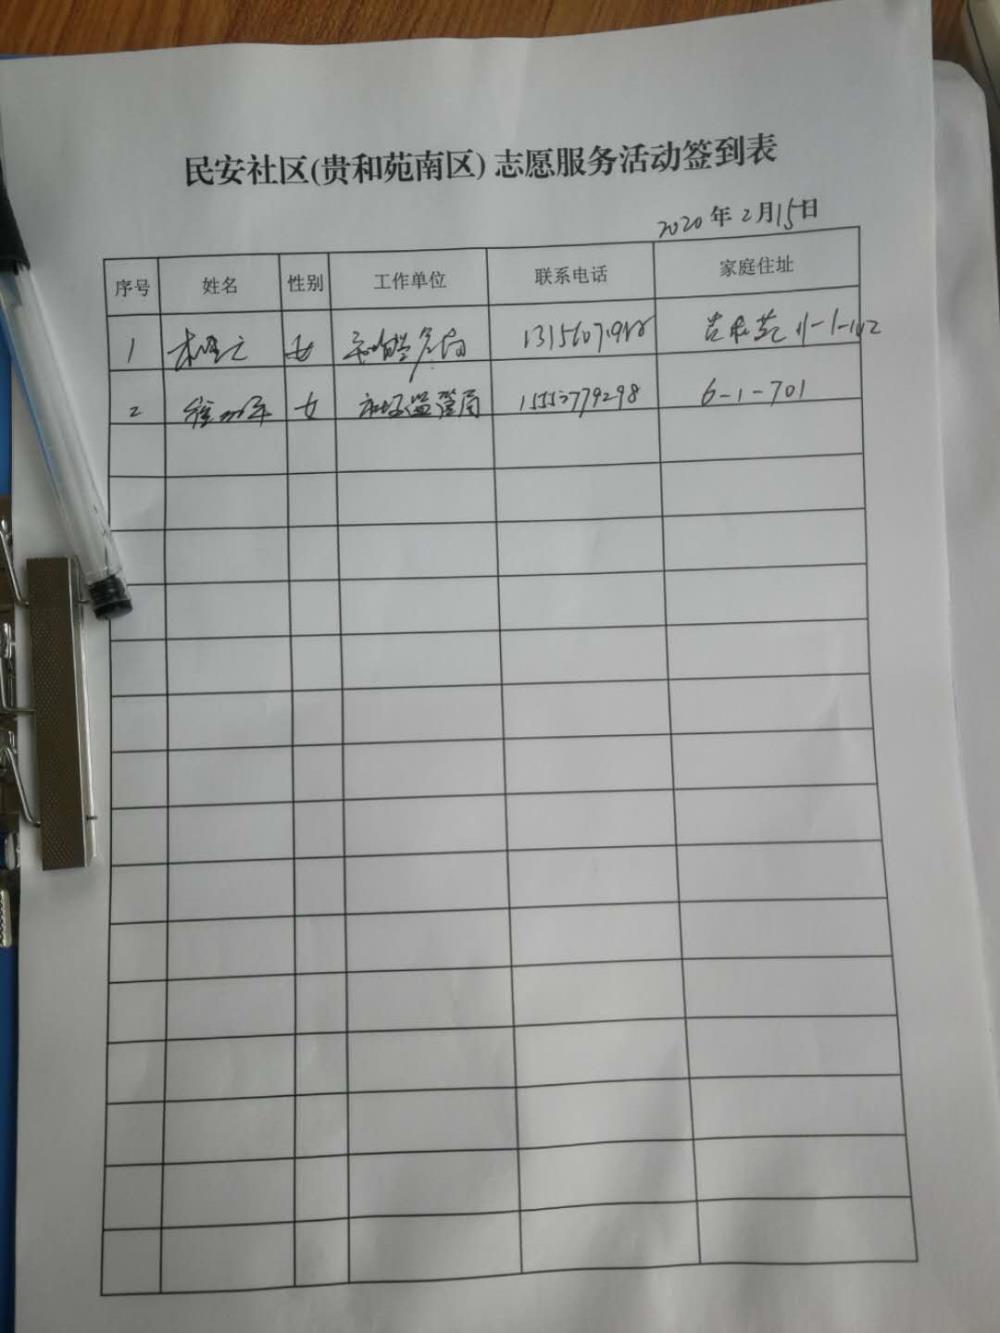 民安社区(贵和苑南区)志愿服务活动签到表
2020年2月15日
序号 姓名 性别 工作单位 联系电话 家庭住址
1 女
2 女 市场监管局 15553779298 6-1-701